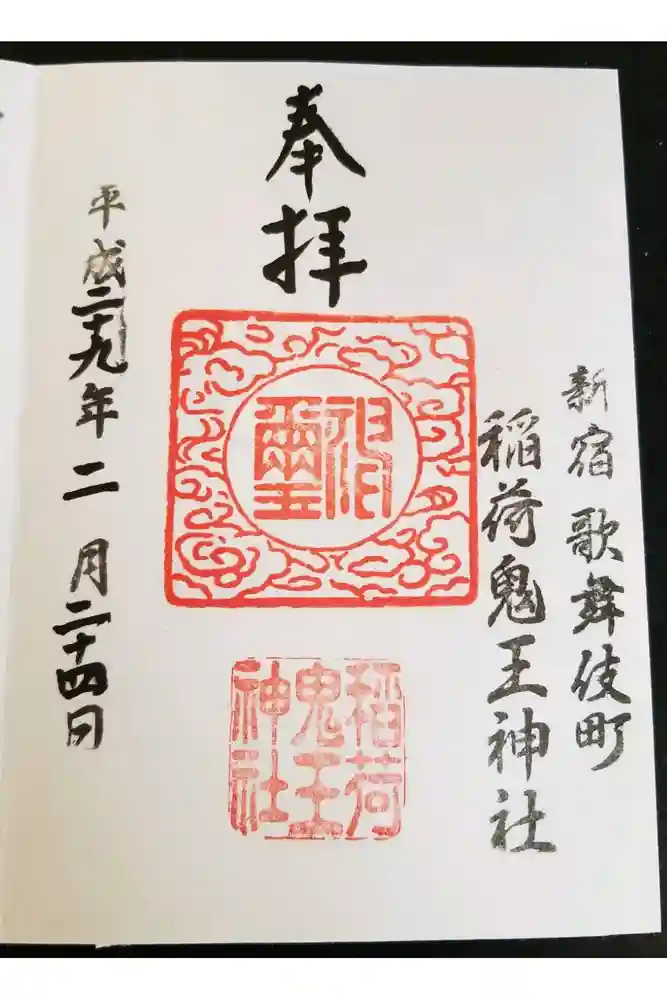 奉拝
新宿歌舞伎町
稲荷鬼王神社
稲荷
鬼王
神社
平成二十九年二月二十四日